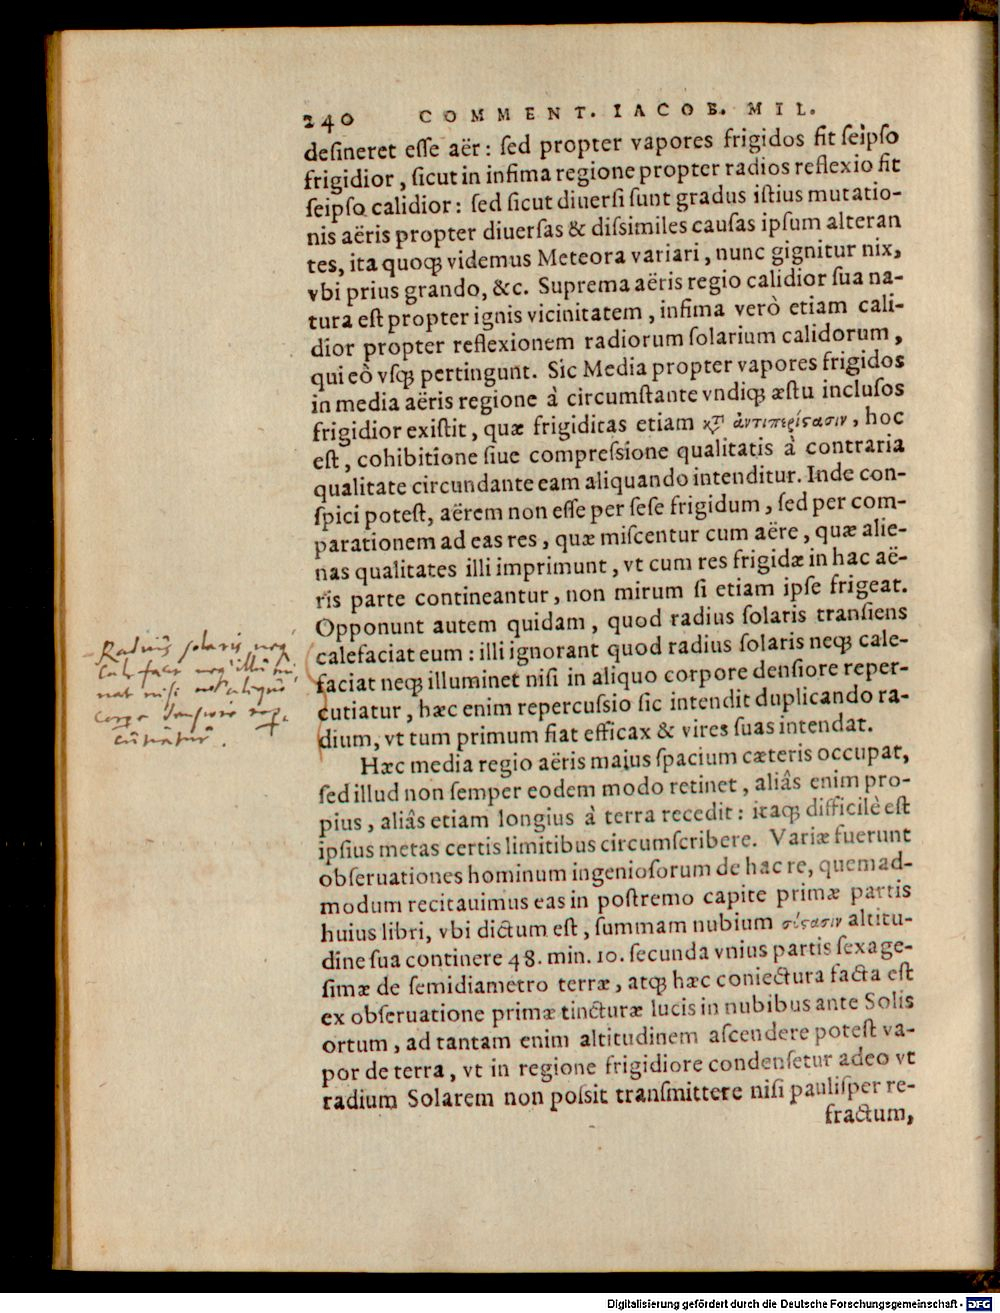 240 COMMENT. IACOB. MIL.
desineret esse aër: sed propter vapores frigidos fit seipso
frigidior, sicut in infima regione propter radios reflexio fit
seipso calidior: sed sicut diuersi sunt gradus istius mutatio-
nis aëris propter diuersas & dissimiles causas ipsum alteran
tes, ita quoqꝫ videmus Meteora variari, nunc gignitur nix,
vbi prius grando, &c. Suprema aëris regio calidior sua na-
tura est propter ignis vicinitatem, infima verò etiam cali-
dior propter reflexionem radiorum solarium calidorum,
qui eò vsqꝫ pertingunt. Sic Media propter vapores frigidos
in media aëris regione à circumstante vndiqꝫ æstu inclusos
frigidior existit, quæ frigiditas etiam κτ̀ ἀντιπερίϛασιν, hoc
est, cohibitione siue compressione qualitatis à contraria
qualitate circundante eam aliquando intenditur. Inde con-
spici potest, aërem non esse per sese frigidum, sed per com-
parationem ad eas res, quæ miscentur cum aëre, quæ alie-
nas qualitates illi imprimunt, vt cum res frigidæ in hac aë-
ris parte contineantur, non mirum si etiam ipse frigeat.
Opponunt autem quidam, quod radius solaris transiens
calefaciat eum: illi ignorant quod radius solaris neqꝫ cale-
faciat neqꝫ illuminet nisi in aliquo corpore densiore reper-
cutiatur, hæc enim repercussio sic intendit duplicando ra-
dium, vt tum primum fiat efficax & vires suas intendat.
Radius solaris neqꝫ
nisi
corpe densiore rep-
cutiatur.
Hæc media regio aëris maius spacium cæteris occupat,
sed illud non semper eodem modo retinet, aliâs enim pro-
pius, aliâs etiam longius à terra recedit: itaqꝫ difficilè est
ipsius metas certis limitibus circumscribere. Variæ fuerunt
obseruationes hominum ingeniosorum de hac re, quemad-
modum recitauimus eas in postremo capite primæ partis
huius libri, vbi dictum est, summam nubium σύϛασιν altitu-
dine sua continere 48. min. 10. secunda vnius partis sexage-
simæ de semidiametro terræ, atqꝫ hæc coniectura facta est
ex obseruatione primæ tincturæ lucis in nubibus ante Solis
ortum, ad tantam enim altitudinem ascendere potest va-
por de terra, vt in regione frigidiore condensetur adeo vt
radium Solarem non possit transmittere nisi paulisper re-
fractum,
Digitalisierung gefördert durch die Deutsche Forschungsgemeinschaft - DFG